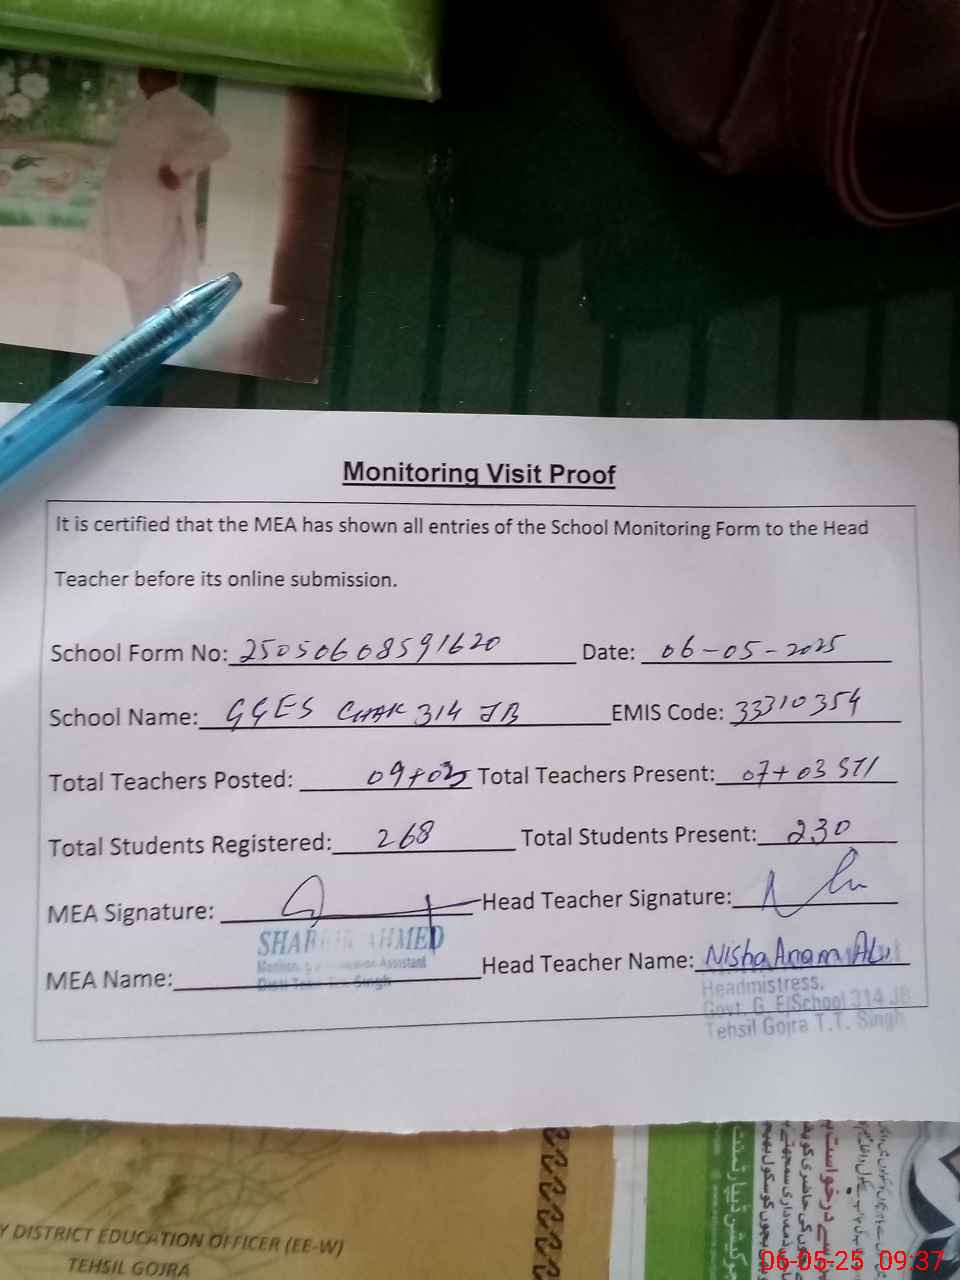 Monitoring Visit Proof
It is certified that the MEA has shown all entries of the School Monitoring Form to the Head
Teacher before its online submission.
School Form No: 25050608591620 Date: 06-05-2025
School Name: GGES CHAK 314 JB EMIS Code: 33310354
Total Teachers Posted: 09+03 Total Teachers Present: 07+03 STI
Total Students Registered: 268 Total Students Present: 230
MEA Signature: Head Teacher Signature:
AHMED
Assistant
Singh
MEA Name: Head Teacher Name: Nisha Anam Ali
Headmistress,
Govt. G. E/School 314 JB
Tehsil Gojra T.T. Singh
Y DISTRICT EDUCATION OFFICER (EE-W)
TEHSIL GOJRA
06-05-25 09:37